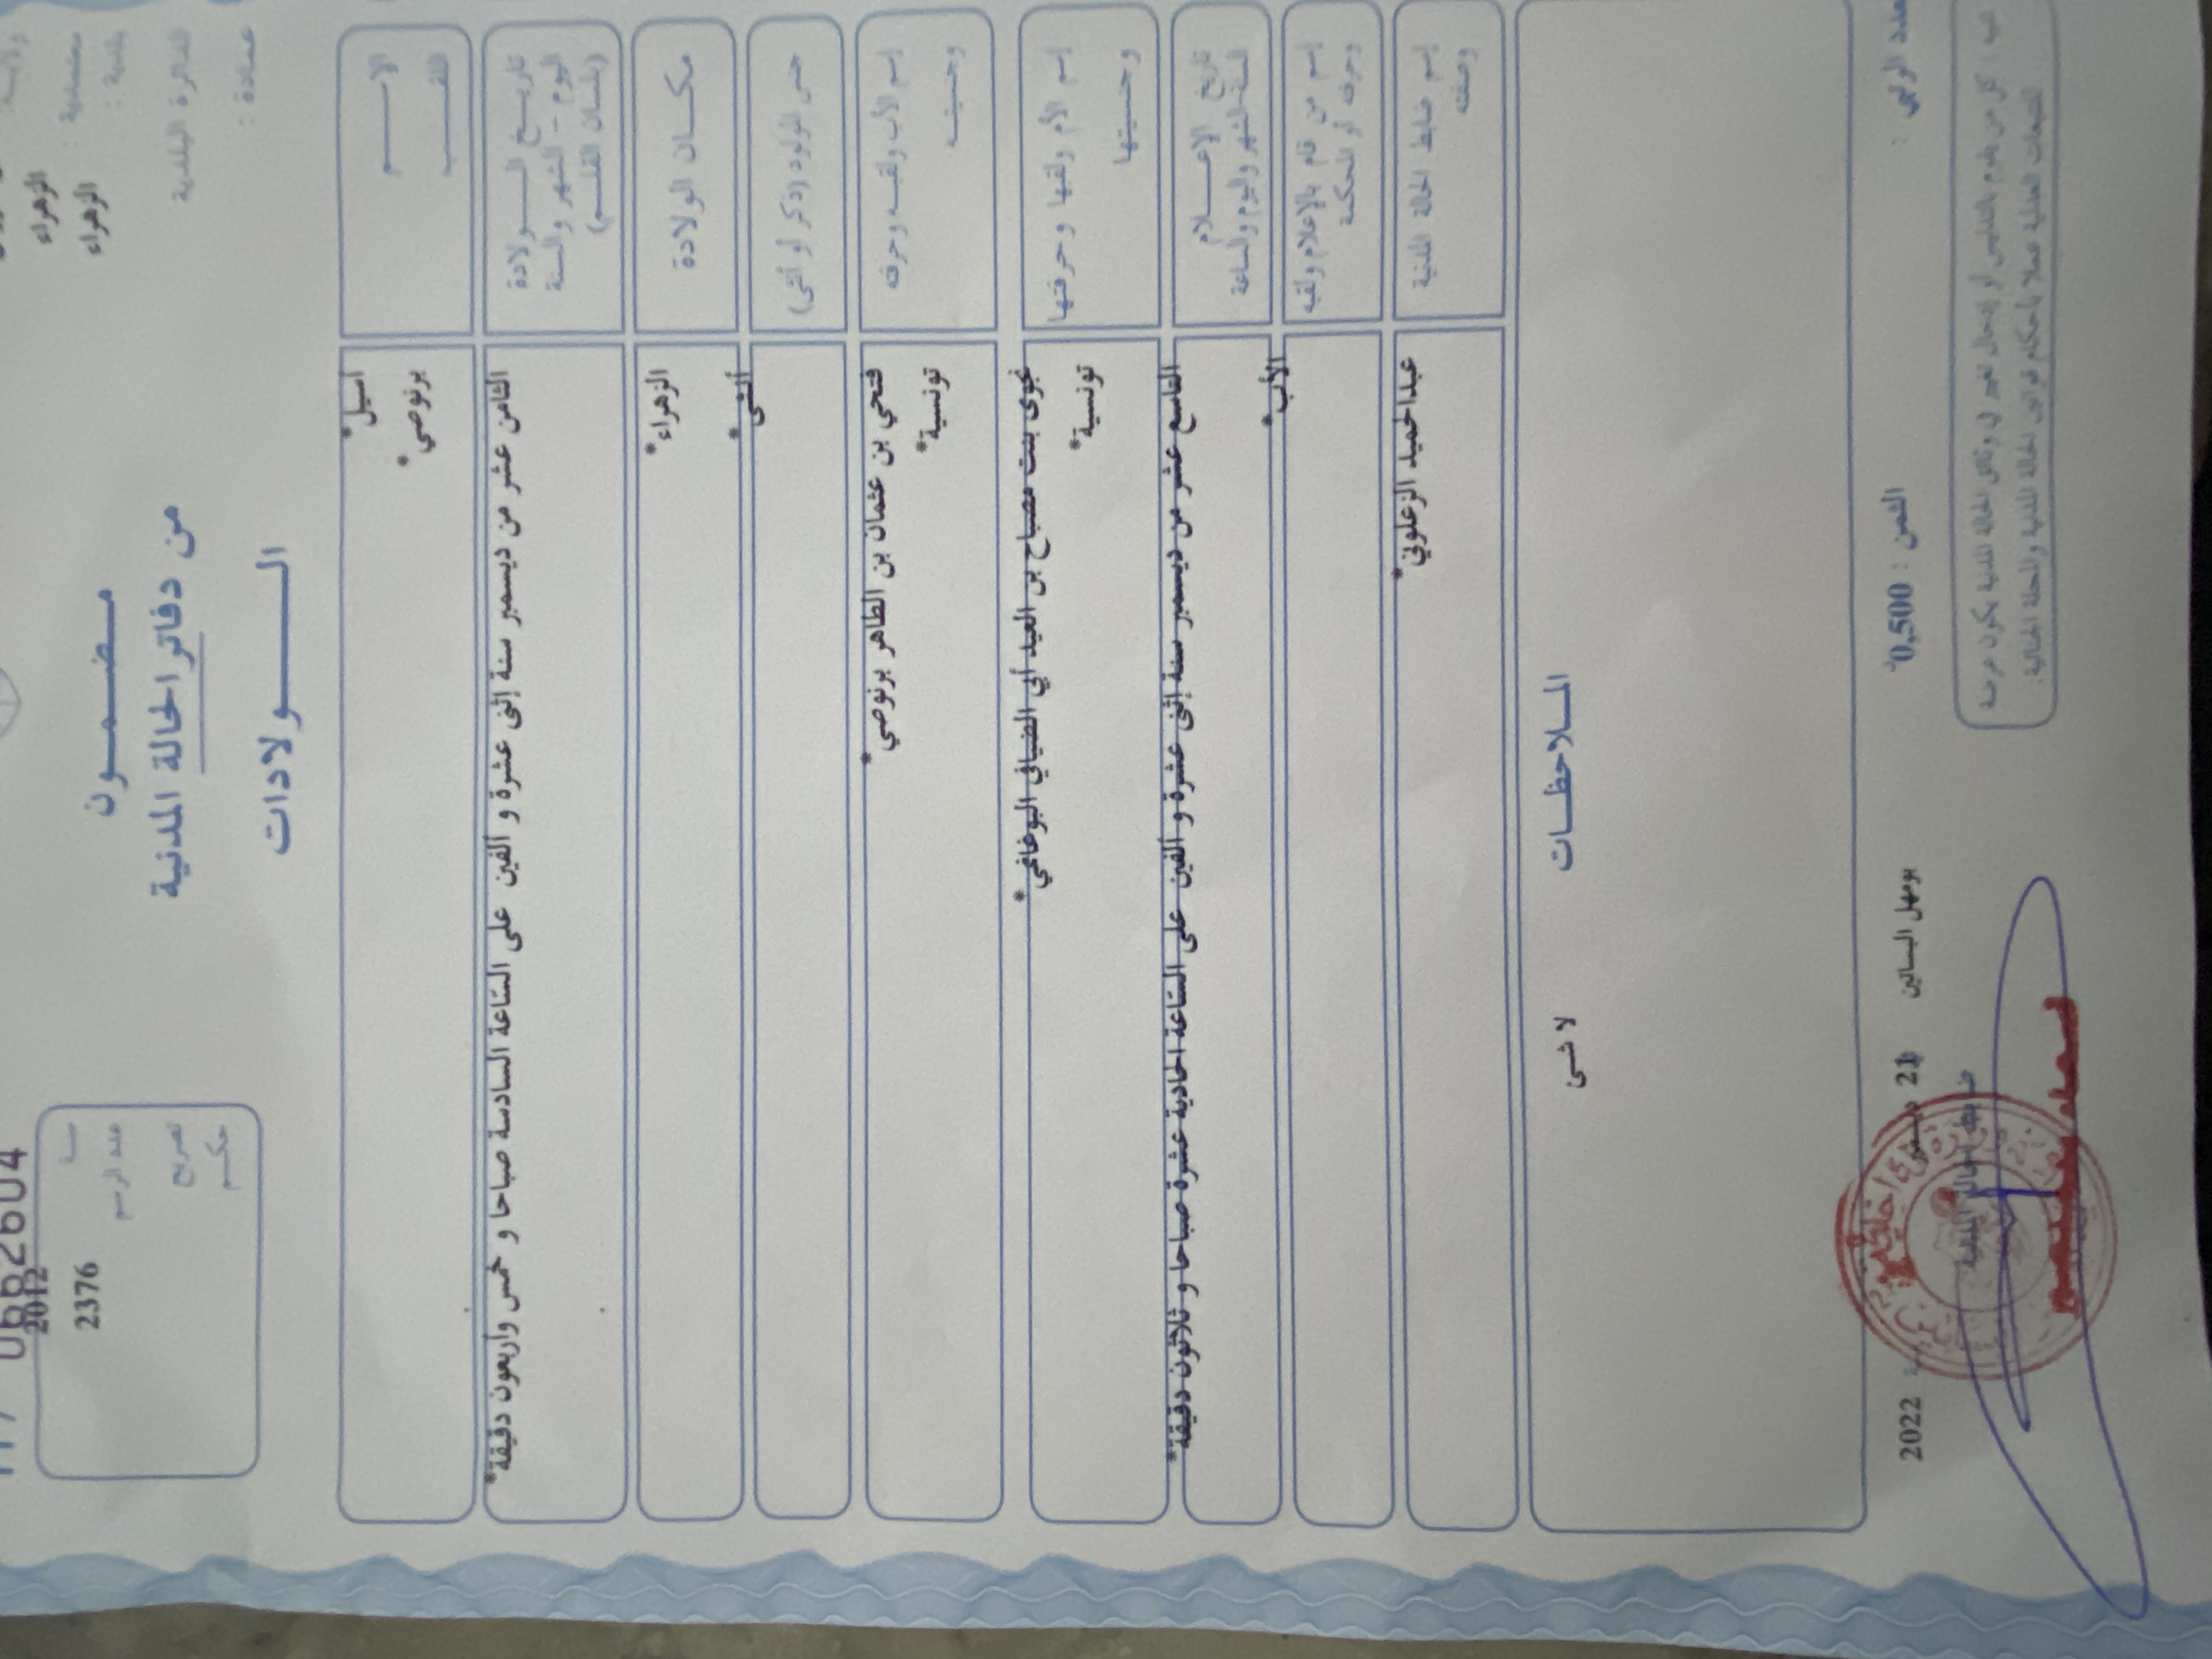 0662604
2012
سنة
2376
عدد الرسم
تصريح
حكم
معتمدية : الزهراء
بلدية : الزهراء
الدائرة البلدية
عمادة :
مضمون
من دفاتر الحالة المدنية
الولادات
الاسم
اسيل*
اللقب
برنوصي*
تاريخ الولادة
اليوم - الشهر والسنة
(بلسان القلم)
الثامن عشر من ديسمبر سنة إثنى عشرة و ألفين على الساعة السادسة صباحا و خمس وأربعون دقيقة*
مكان الولادة
الزهراء*
جنس المولود (ذكر أو أنثى)
أنثى*
إسم الأب ولقبه وحرفته
فتحي بن عثمان بن الطاهر برنوصي*
وجنسيته
تونسية*
إسم الأم ولقبها وحرفتها
نجوى بنت مصباح بن العيد أبي الضيافي البوغانمي*
وجنسيتها
تونسية*
تاريخ الإعلام
السنة الشهر واليوم والساعة
التاسع عشر من ديسمبر سنة إثنى عشرة و ألفين على الساعة الحادية عشرة صباحا و ثلاثون دقيقة*
إسم من قام بالإعلام ولقبه
وحرفته أو المحكمة
الأب*
إسم ضابط الحالة المدنية
وصفته
عبدالحميد الزعلوني*
الملاحظات
لا شئ
عدد الرمي :
الثمن : 0,500
بومهل البساتين
21
2022
ضابط الحالة المدنية
تنبيه : كل من يقوم بالتدليس أو إدخال تغيير في وثائق الحالة المدنية يكون عرضة
للتتبعات العدلية عملا بأحكام قوانين الحالة المدنية والمجلة الجنائية.